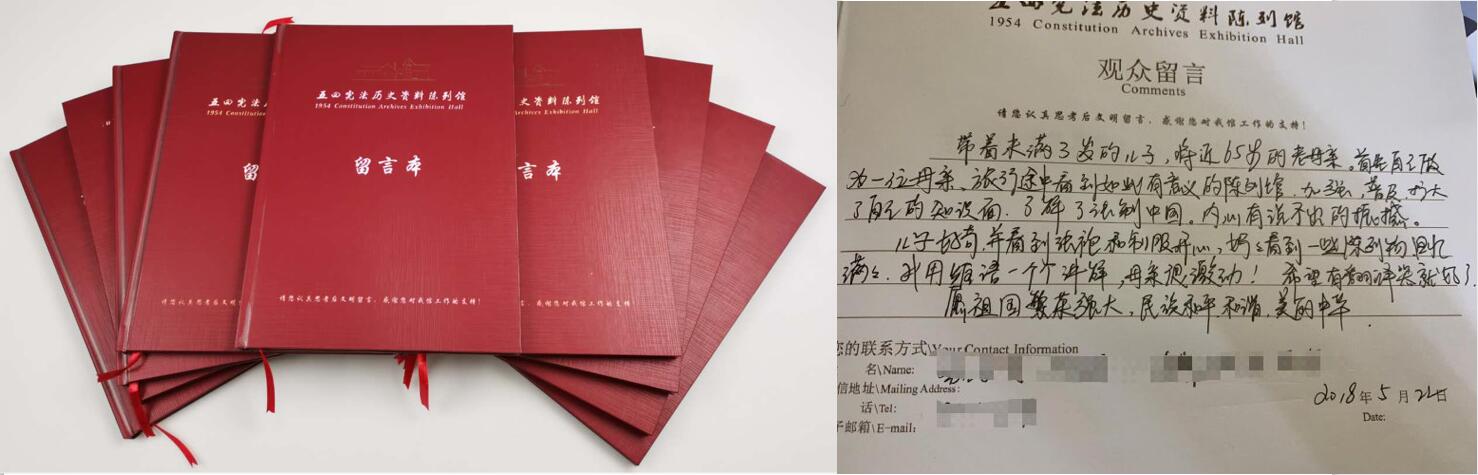 五四宪法历史资料陈列馆
1954 Constitution Archives Exhibition Hall
留言本
请您认真思考后文明留言，感谢您对我馆工作的支持！
五四宪法历
1954 Constitution
留
请您认真思考后文明
史资料陈列馆
Archives Exhibition Hall
言本
感谢您对我馆工作的支持！
五四宪法历史资料陈列馆
1954 Constitution Archives Exhibition Hall
观众留言
Comments
请您认真思考后文明留言，感谢您对我馆工作的支持！
带着未满3岁的儿子，将近65岁的老母亲。首先自己做
为一位母亲、旅行途中看到如此有意义的陈列馆，加强、普及、扩大
了自己的知识面，了解了法制中国。内心有说不出的振撼。
儿子好奇，并看到法袍和制服开心，妈妈看到一些陈列物回忆
满满，我用维语一个个讲解，母亲很激动！希望有就好了.
愿祖国繁荣强大，民族和平、和谐，美丽中华
您的联系方式\Your Contact Information
名\Name:
信地址\Mailing Address:
话\Tel:
子邮箱\E-mail:
2018年5月22日
Date: